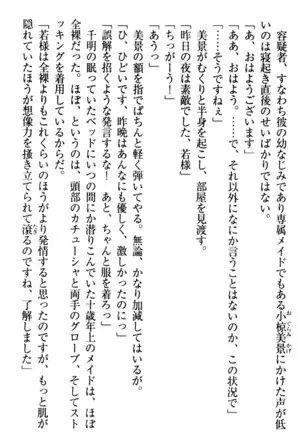 容疑者、すなわち彼の幼なじみであり専属メイドでもある小椋美景にかけた声が低
おぐらみかげ
いのは寝起き直後のせいばかりではない。
「あ、おはようございます」
「ああ、おはよう。……で、それ以外になにか言うことはないのか、この状況で」
「……そうですねぇ」
美景がむくりと半身を起こし、部屋を見渡す。
「昨日の夜は素敵でした、若様」
「ちっがーう！」
「あうっ」
美景の額を指でぱちんと軽く弾いてやる。無論、かなり加減してはいる。
「ひ、ひどいです、昨晩はあんなにも優しく、激しかったのにっ」
「誤解を招くような発言するな！　あと、ちゃんと服を着ろっ」
千明の眠っていたベッドにいつの間にか潜りこんだ十歳年上のメイドは、ほぼ
全裸だった。ほぼ、というのは、頭部のカチューシャと両手のグローブ、そしてスト
ッキングを着用しているからだ。
「若様は全裸よりもこれくらいのほうが発情すると思ったのですが、もっと肌が
隠れていたほうが想像力を掻き立てられて滾るのですね、了解しました」
たぎ